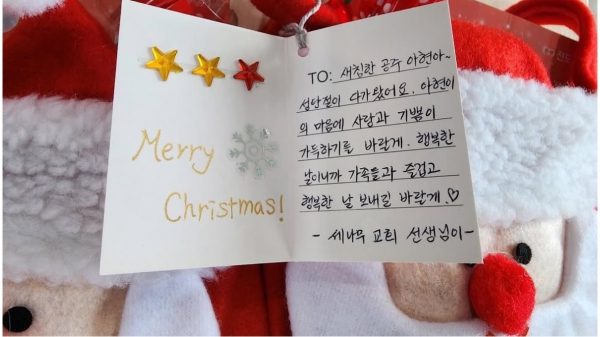 Merry
Christmas!
TO: 새침한 공주 아현아~
성탄절이 다가왔어요. 아현이
의 마음에 사랑과 기쁨이
가득하기를 바랄게. 행복한
날이니까 가족들과 즐겁고
행복한 날 보내길 바랄게.♡
- 세나무 교회 선생님이-